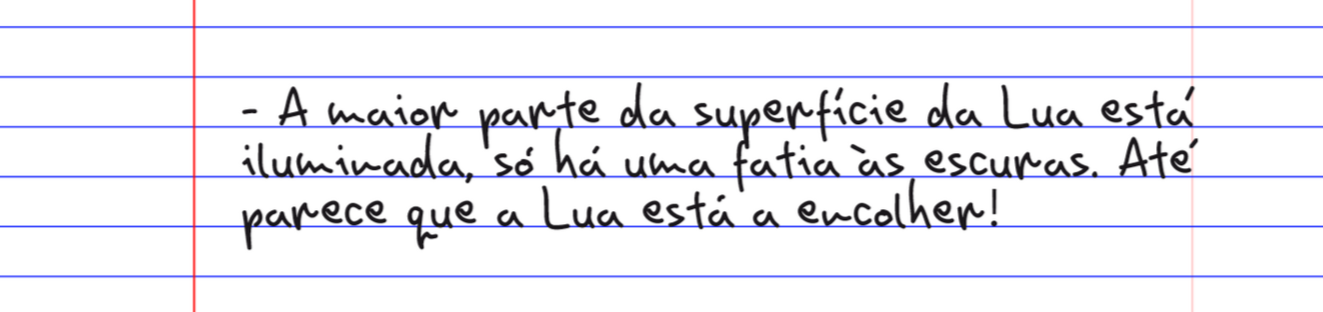 - A maior parte da superfície da Lua está
iluminada, só há uma fatia às escuras. Até
parece que a Lua está a encolher!